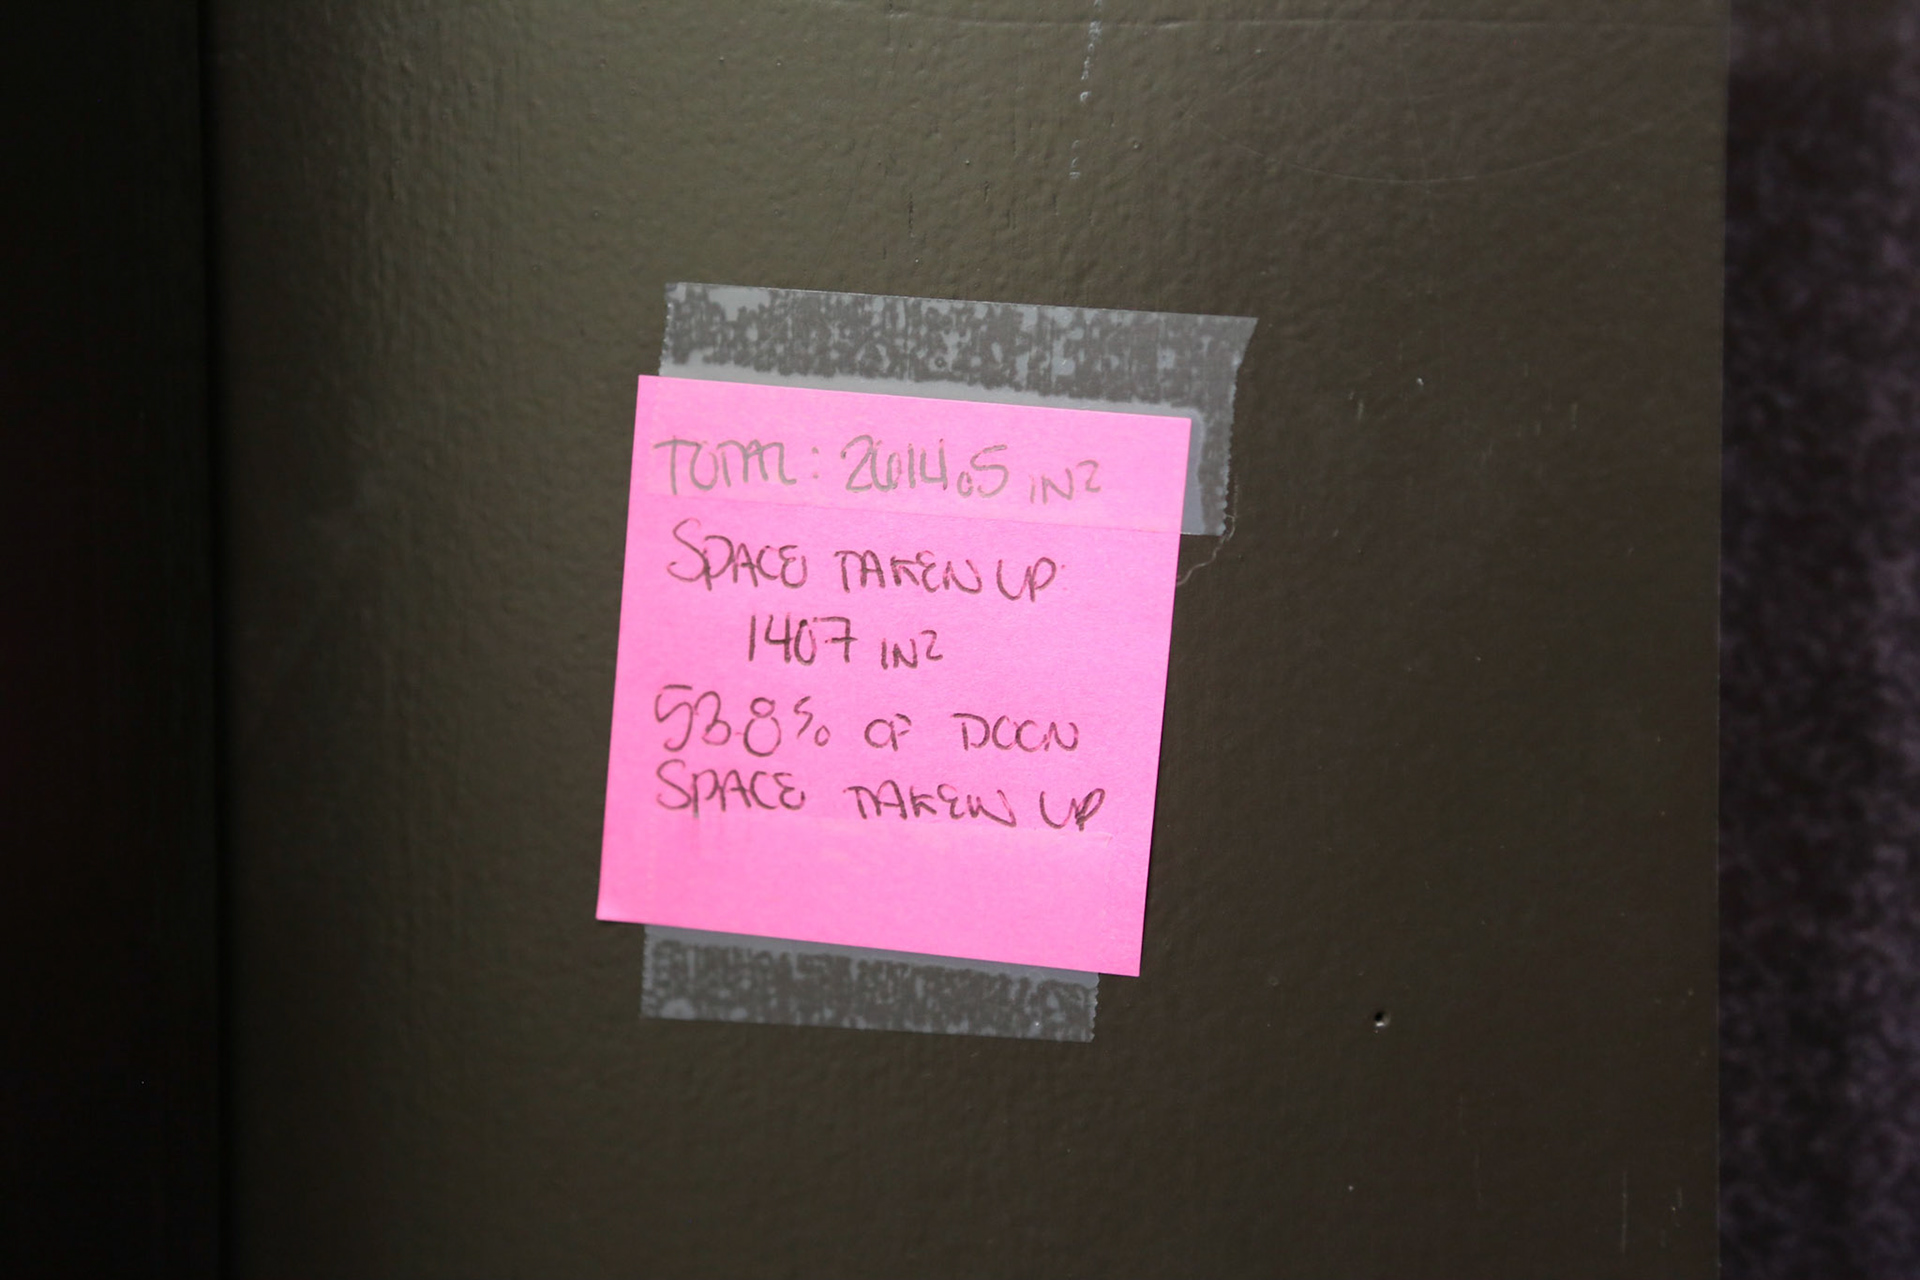 TOTAL: 2614.5 IN2
SPACE TAKEN UP
1407 IN2
53.8% OF DOOR
SPACE TAKEN UP